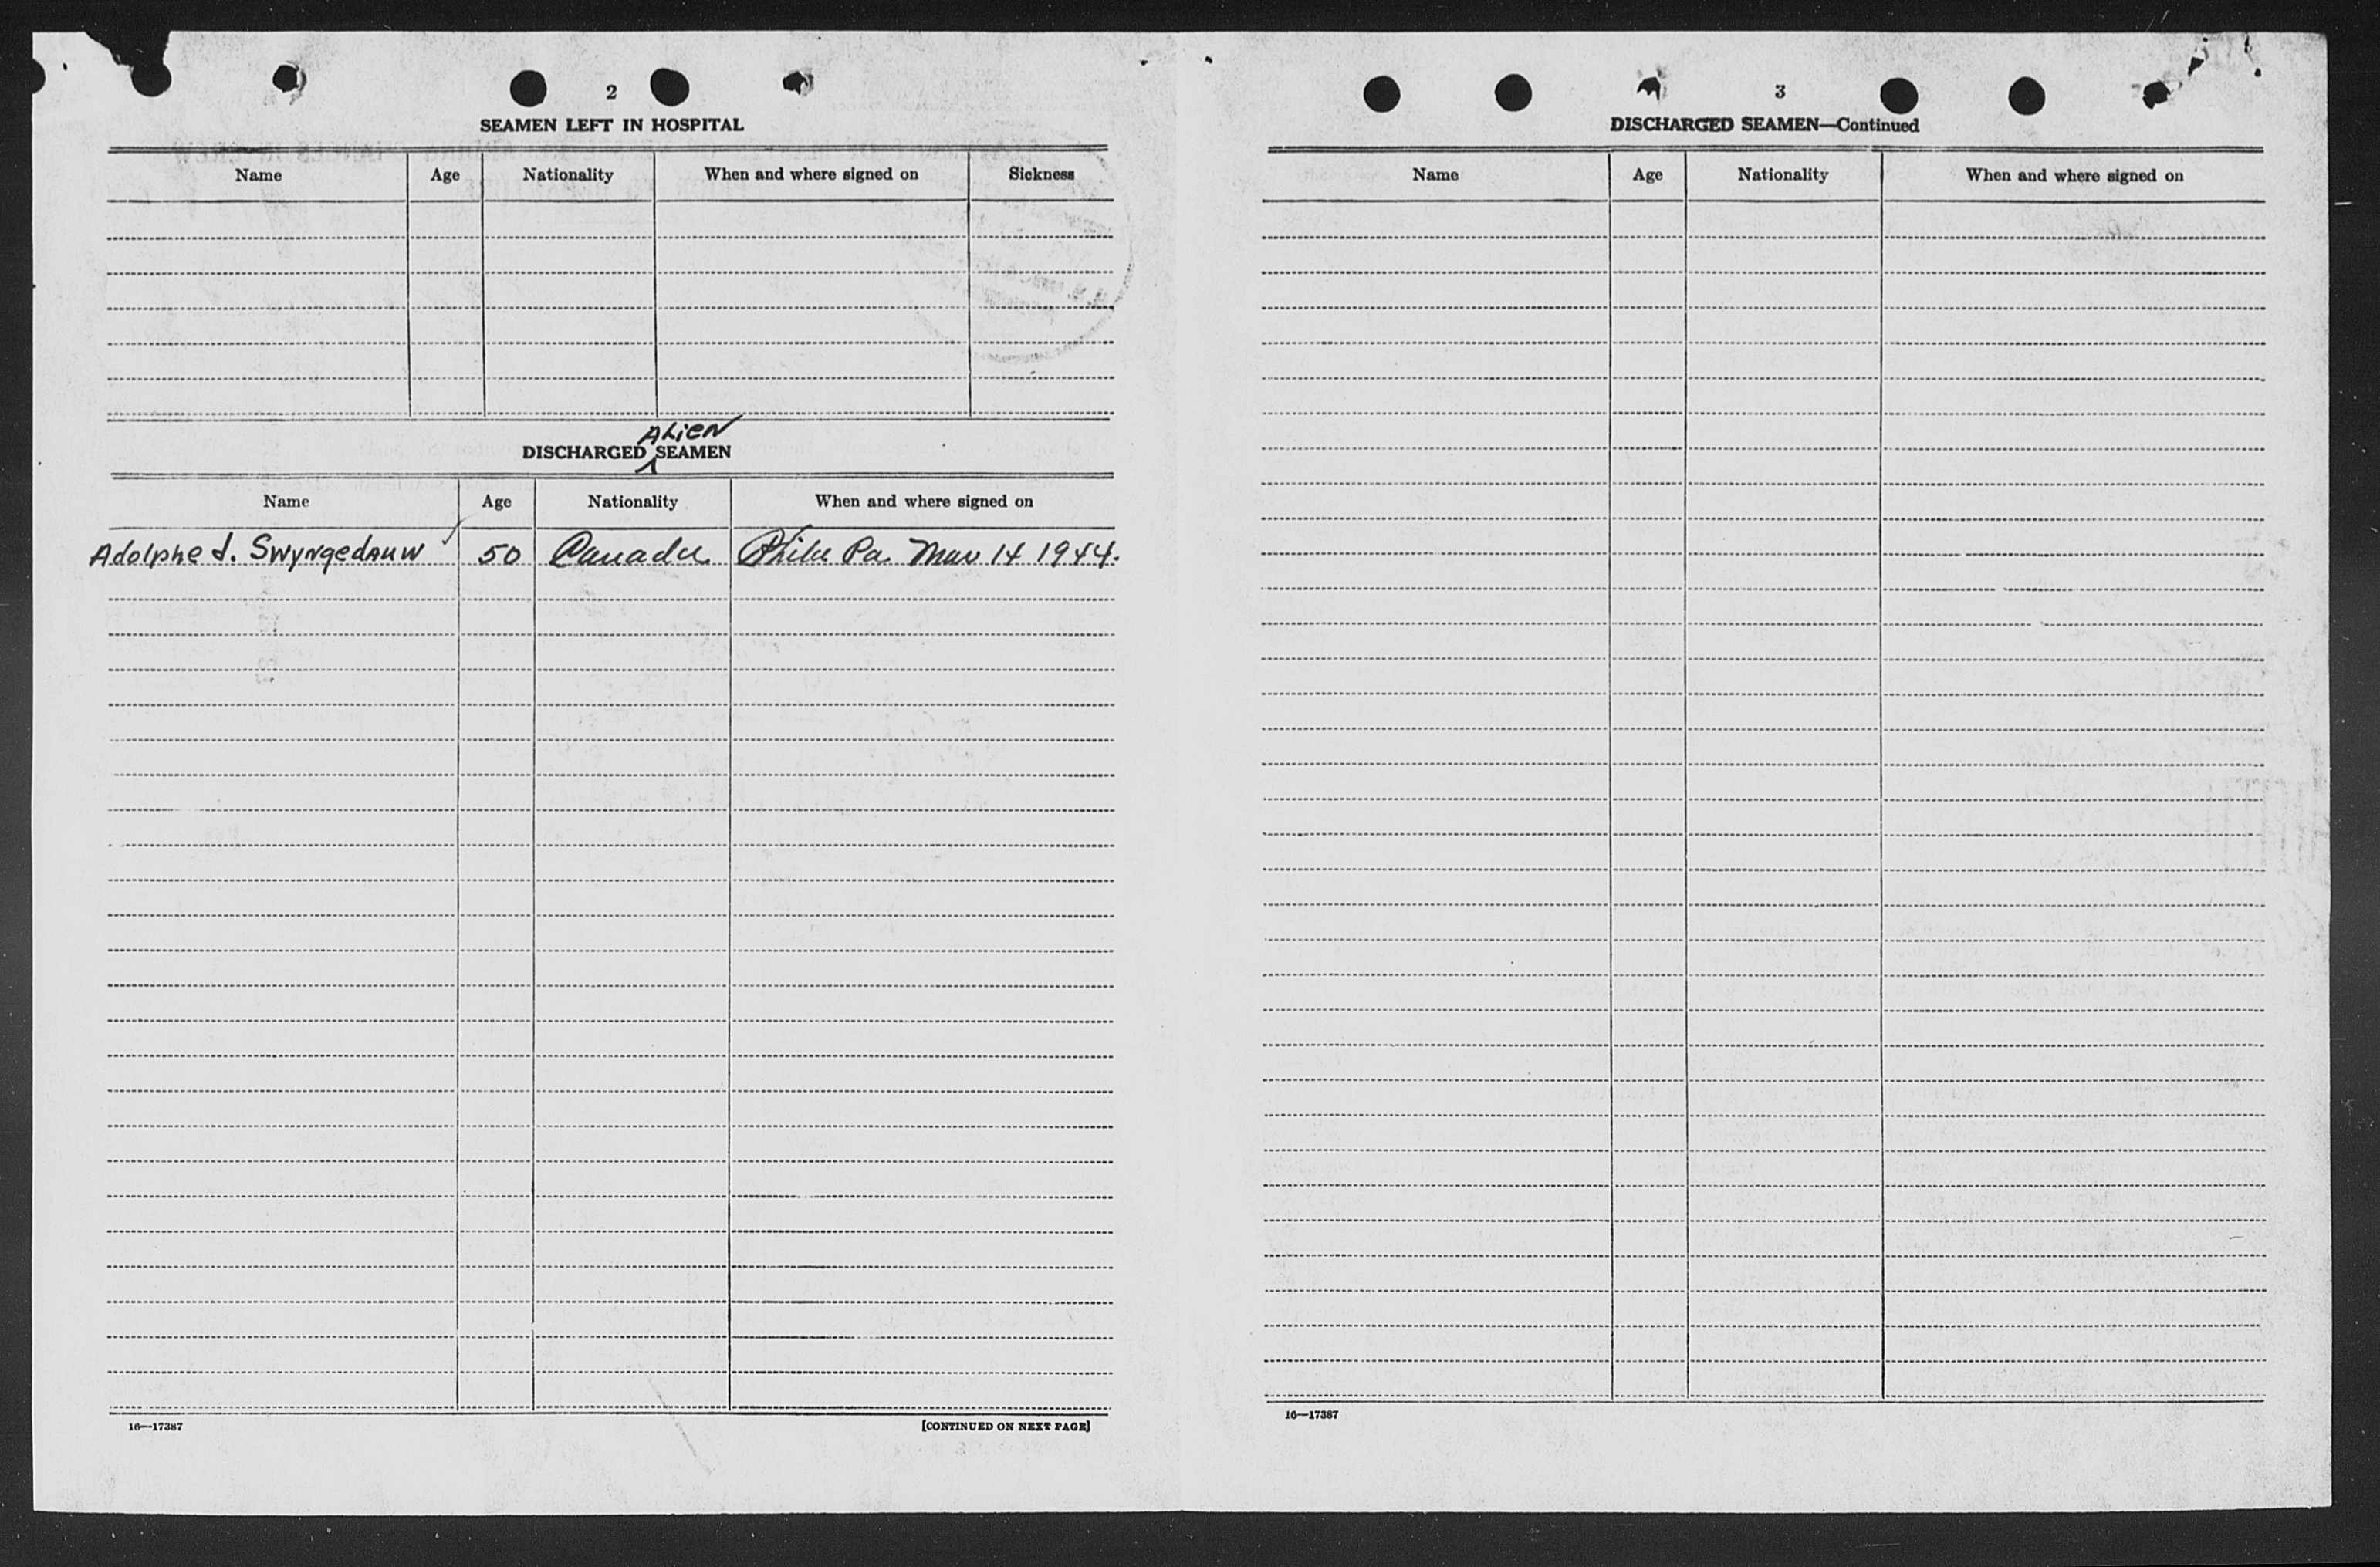 2
SEAMEN LEFT IN HOSPITAL
Name Age Nationality When and where signed on Sickness
ALiEN
DISCHARGED SEAMEN
Name Age Nationality When and where signed on
Adolphe J. Swyngedauw 50 Canada Phila Pa. Mar 14 1944.
16—17387
[CONTINUED ON NEXT PAGE]
3
DISCHARGED SEAMEN—Continued
Name Age Nationality When and where signed on
16—17387